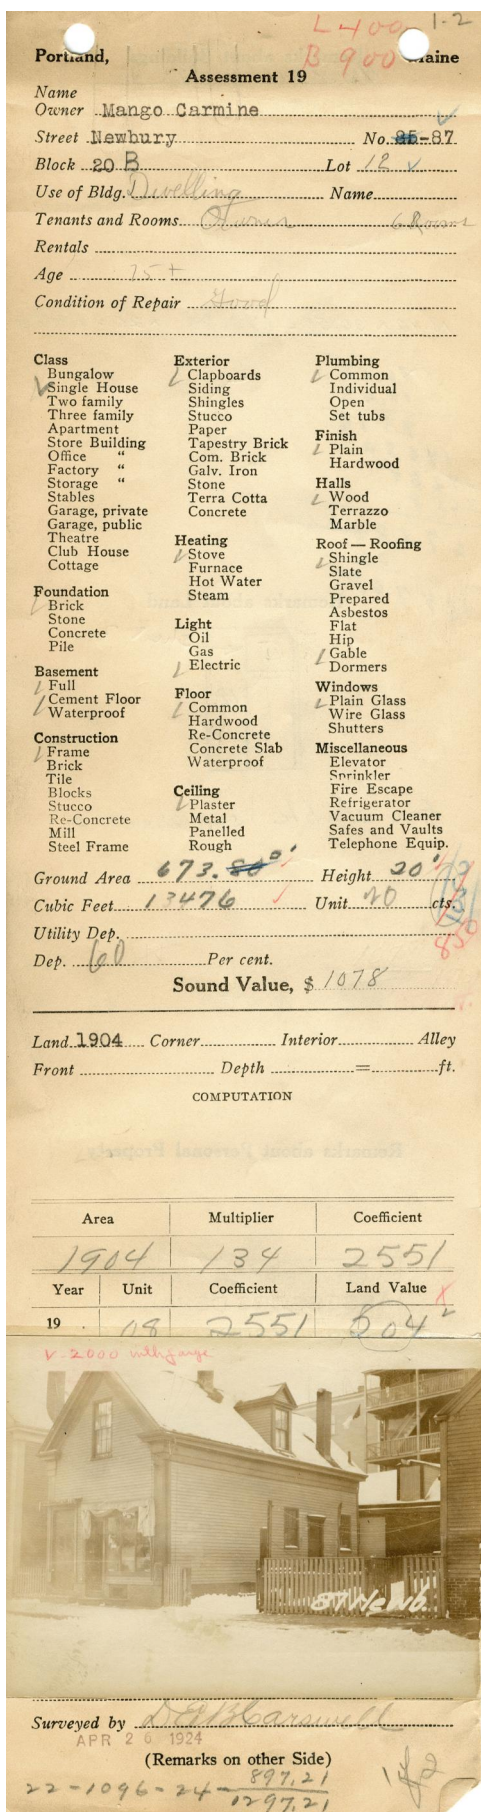 L 400 1-2
B 900
Portland, Maine
Assessment 19
Name
Owner Mango Carmine
Street Newbury No. 85-87
Block 20 B Lot 12
Use of Bldg. Dwelling Name
Tenants and Rooms Owner 6 Rooms
Rentals
Age 75+
Condition of Repair Good
Class
Bungalow
Single House
Two family
Three family
Apartment
Store Building
Office "
Factory "
Storage "
Stables
Garage, private
Garage, public
Theatre
Club House
Cottage
Foundation
Brick
Stone
Concrete
Pile
Basement
Full
Cement Floor
Waterproof
Construction
Frame
Brick
Tile
Blocks
Stucco
Re-Concrete
Mill
Steel Frame
Exterior
Clapboards
Siding
Shingles
Stucco
Paper
Tapestry Brick
Com. Brick
Galv. Iron
Stone
Terra Cotta
Concrete
Heating
Stove
Furnace
Hot Water
Steam
Light
Oil
Gas
Electric
Floor
Common
Hardwood
Re-Concrete
Concrete Slab
Waterproof
Ceiling
Plaster
Metal
Panelled
Rough
Plumbing
Common
Individual
Open
Set tubs
Finish
Plain
Hardwood
Halls
Wood
Terrazzo
Marble
Roof — Roofing
Shingle
Slate
Gravel
Prepared
Asbestos
Flat
Hip
Gable
Dormers
Windows
Plain Glass
Wire Glass
Shutters
Miscellaneous
Elevator
Sprinkler
Fire Escape
Refrigerator
Vacuum Cleaner
Safes and Vaults
Telephone Equip.
Ground Area 673.80 Height 20'
Cubic Feet 13476 Unit 20 cts.
Utility Dep. 850
Dep. 60 Per cent.
Sound Value, $ 1078
Land 1904 Corner Interior Alley
Front Depth = ft.
COMPUTATION
Area Multiplier Coefficient
1904 134 2551
Year Unit Coefficient Land Value
19 08 2551 204
V-2000
87 Newb.
Surveyed by
APR 26 1924
(Remarks on other Side)
1 of 2
22-1096-24- 897,21
1297,21